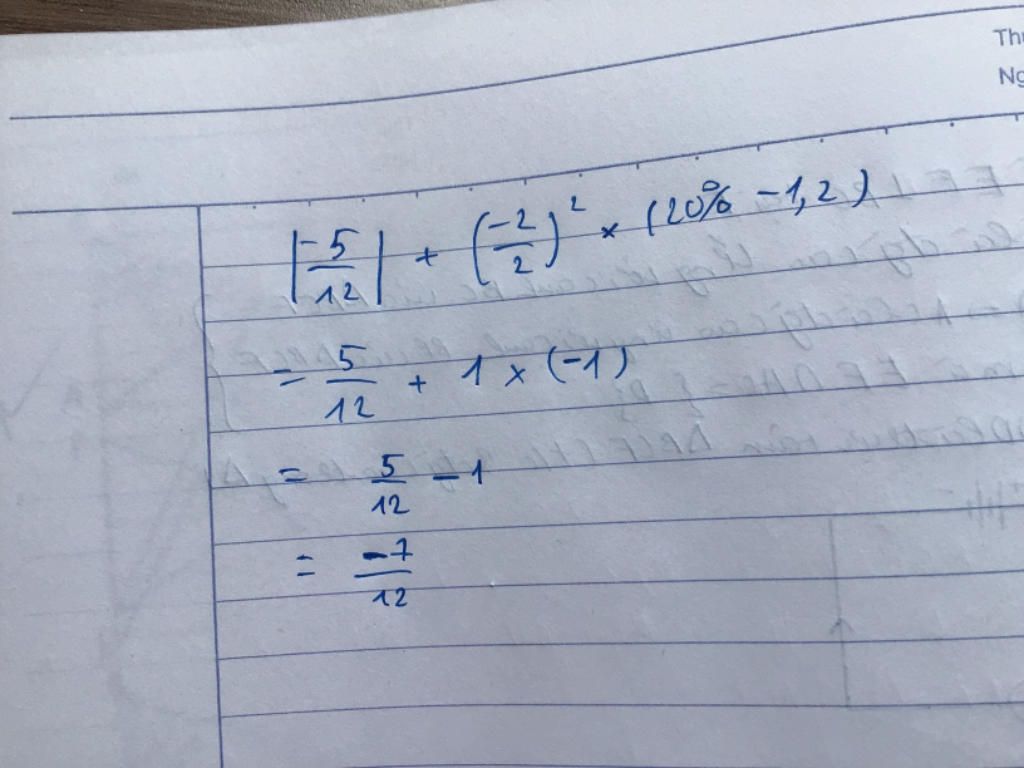 Th
Ng
|-5/12| + (-2/2)² × (20% - 1,2)
= 5/12 + 1 × (-1)
= 5/12 - 1
= -7/12